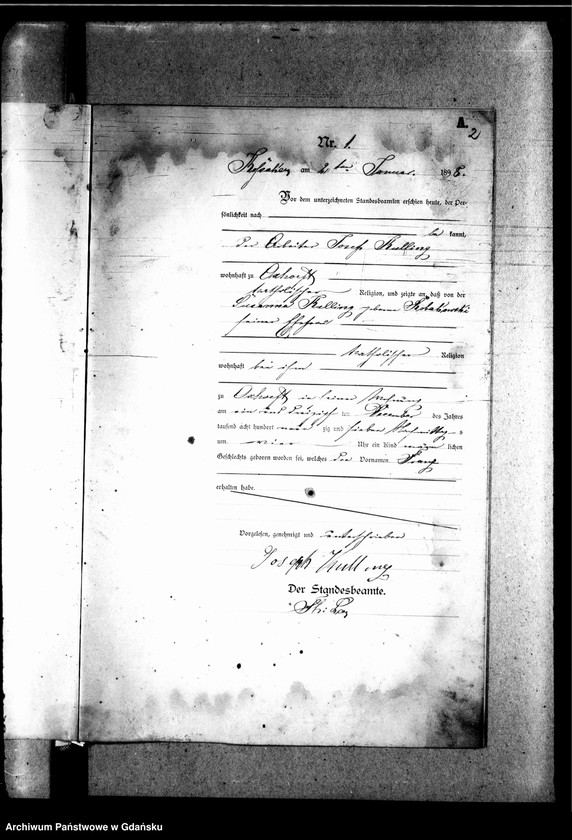 A.
2
Nr. 1.
am 2 ten Januar. 1898.
Vor dem unterzeichneten Standesbeamten erschien heute, der Per-
sönlichkeit nach
be kannt,
der Arbeiter Josef Kulling
wohnhaft zu Oxhoeft
katholischer Religion, und zeigte an, daß von der
Kulling geborene
seiner Ehefrau
katholischer Religion
wohnhaft bei ihm
zu Oxhoeft in seiner Wohnung
am ein und dreizigsten ten Dezember des Jahres
tausend acht hundert neun zig und sieben Nachmittag s
um Uhr ein Kind männ lichen
Geschlechts geboren worden sei, welches den Vornamen Franz
erhalten habe.
Vorgelesen, genehmigt und unterschrieben
Joseph Kulling
Der Standesbeamte.
Archiwum Państwowe w Gdańsku